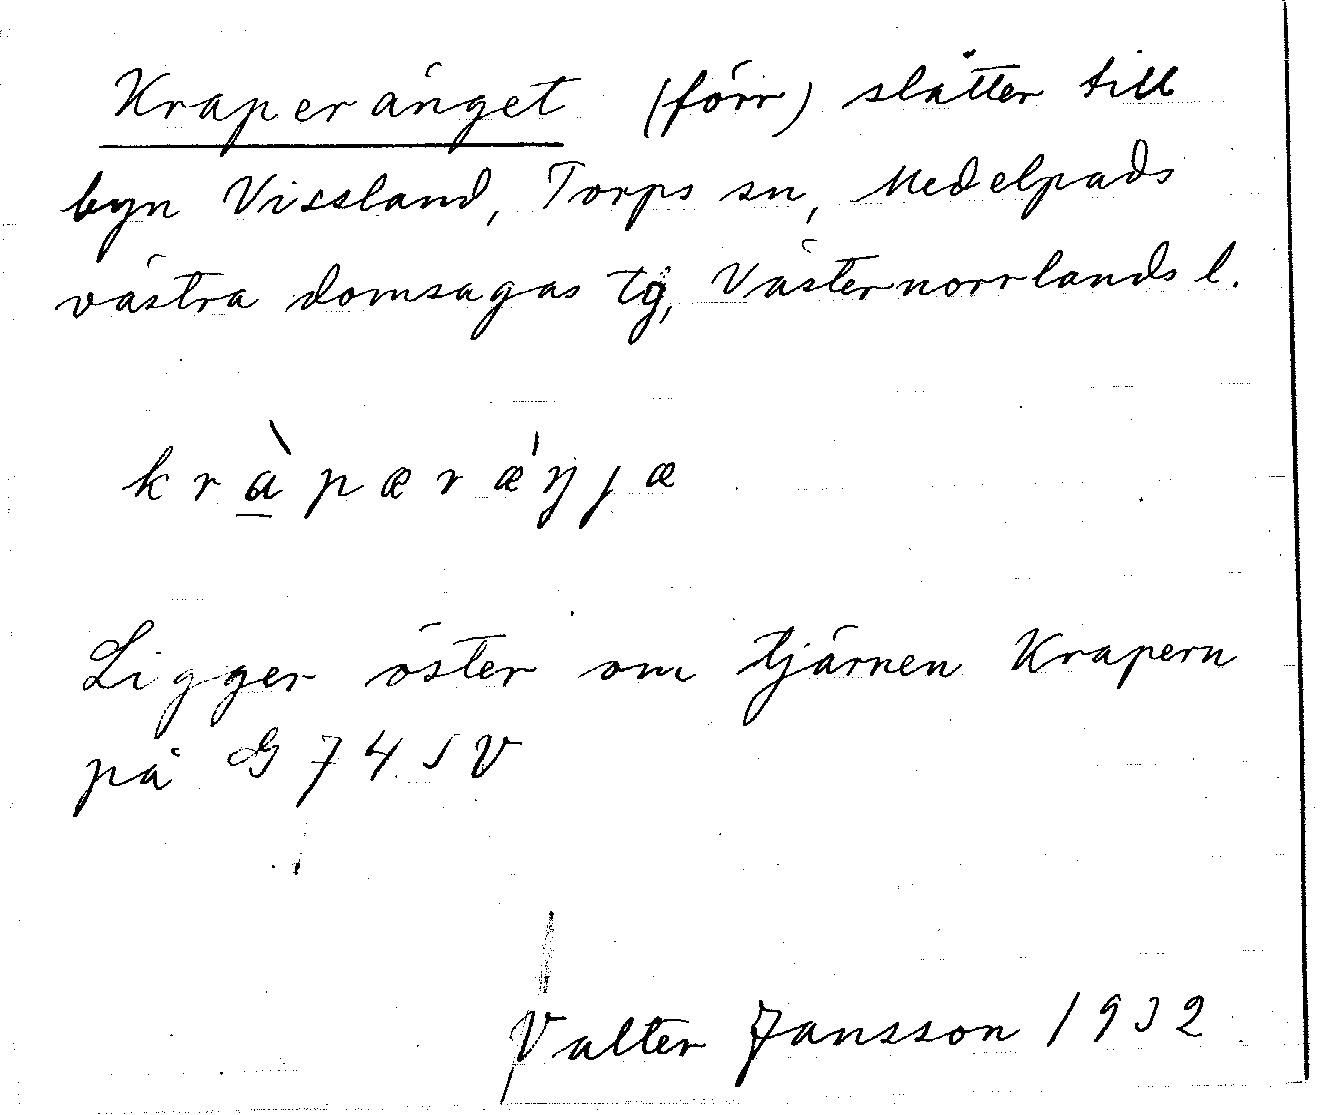 Kraperänget (förr) slåtter till
byn Vissland, Torps sn, Medelpads
västra domsagas tg, Västernorrlands l.
kràpæræ̍ŋjæ
Ligger öster om tjärnen Krapern
på G 74 SV
Valter Jansson 1932